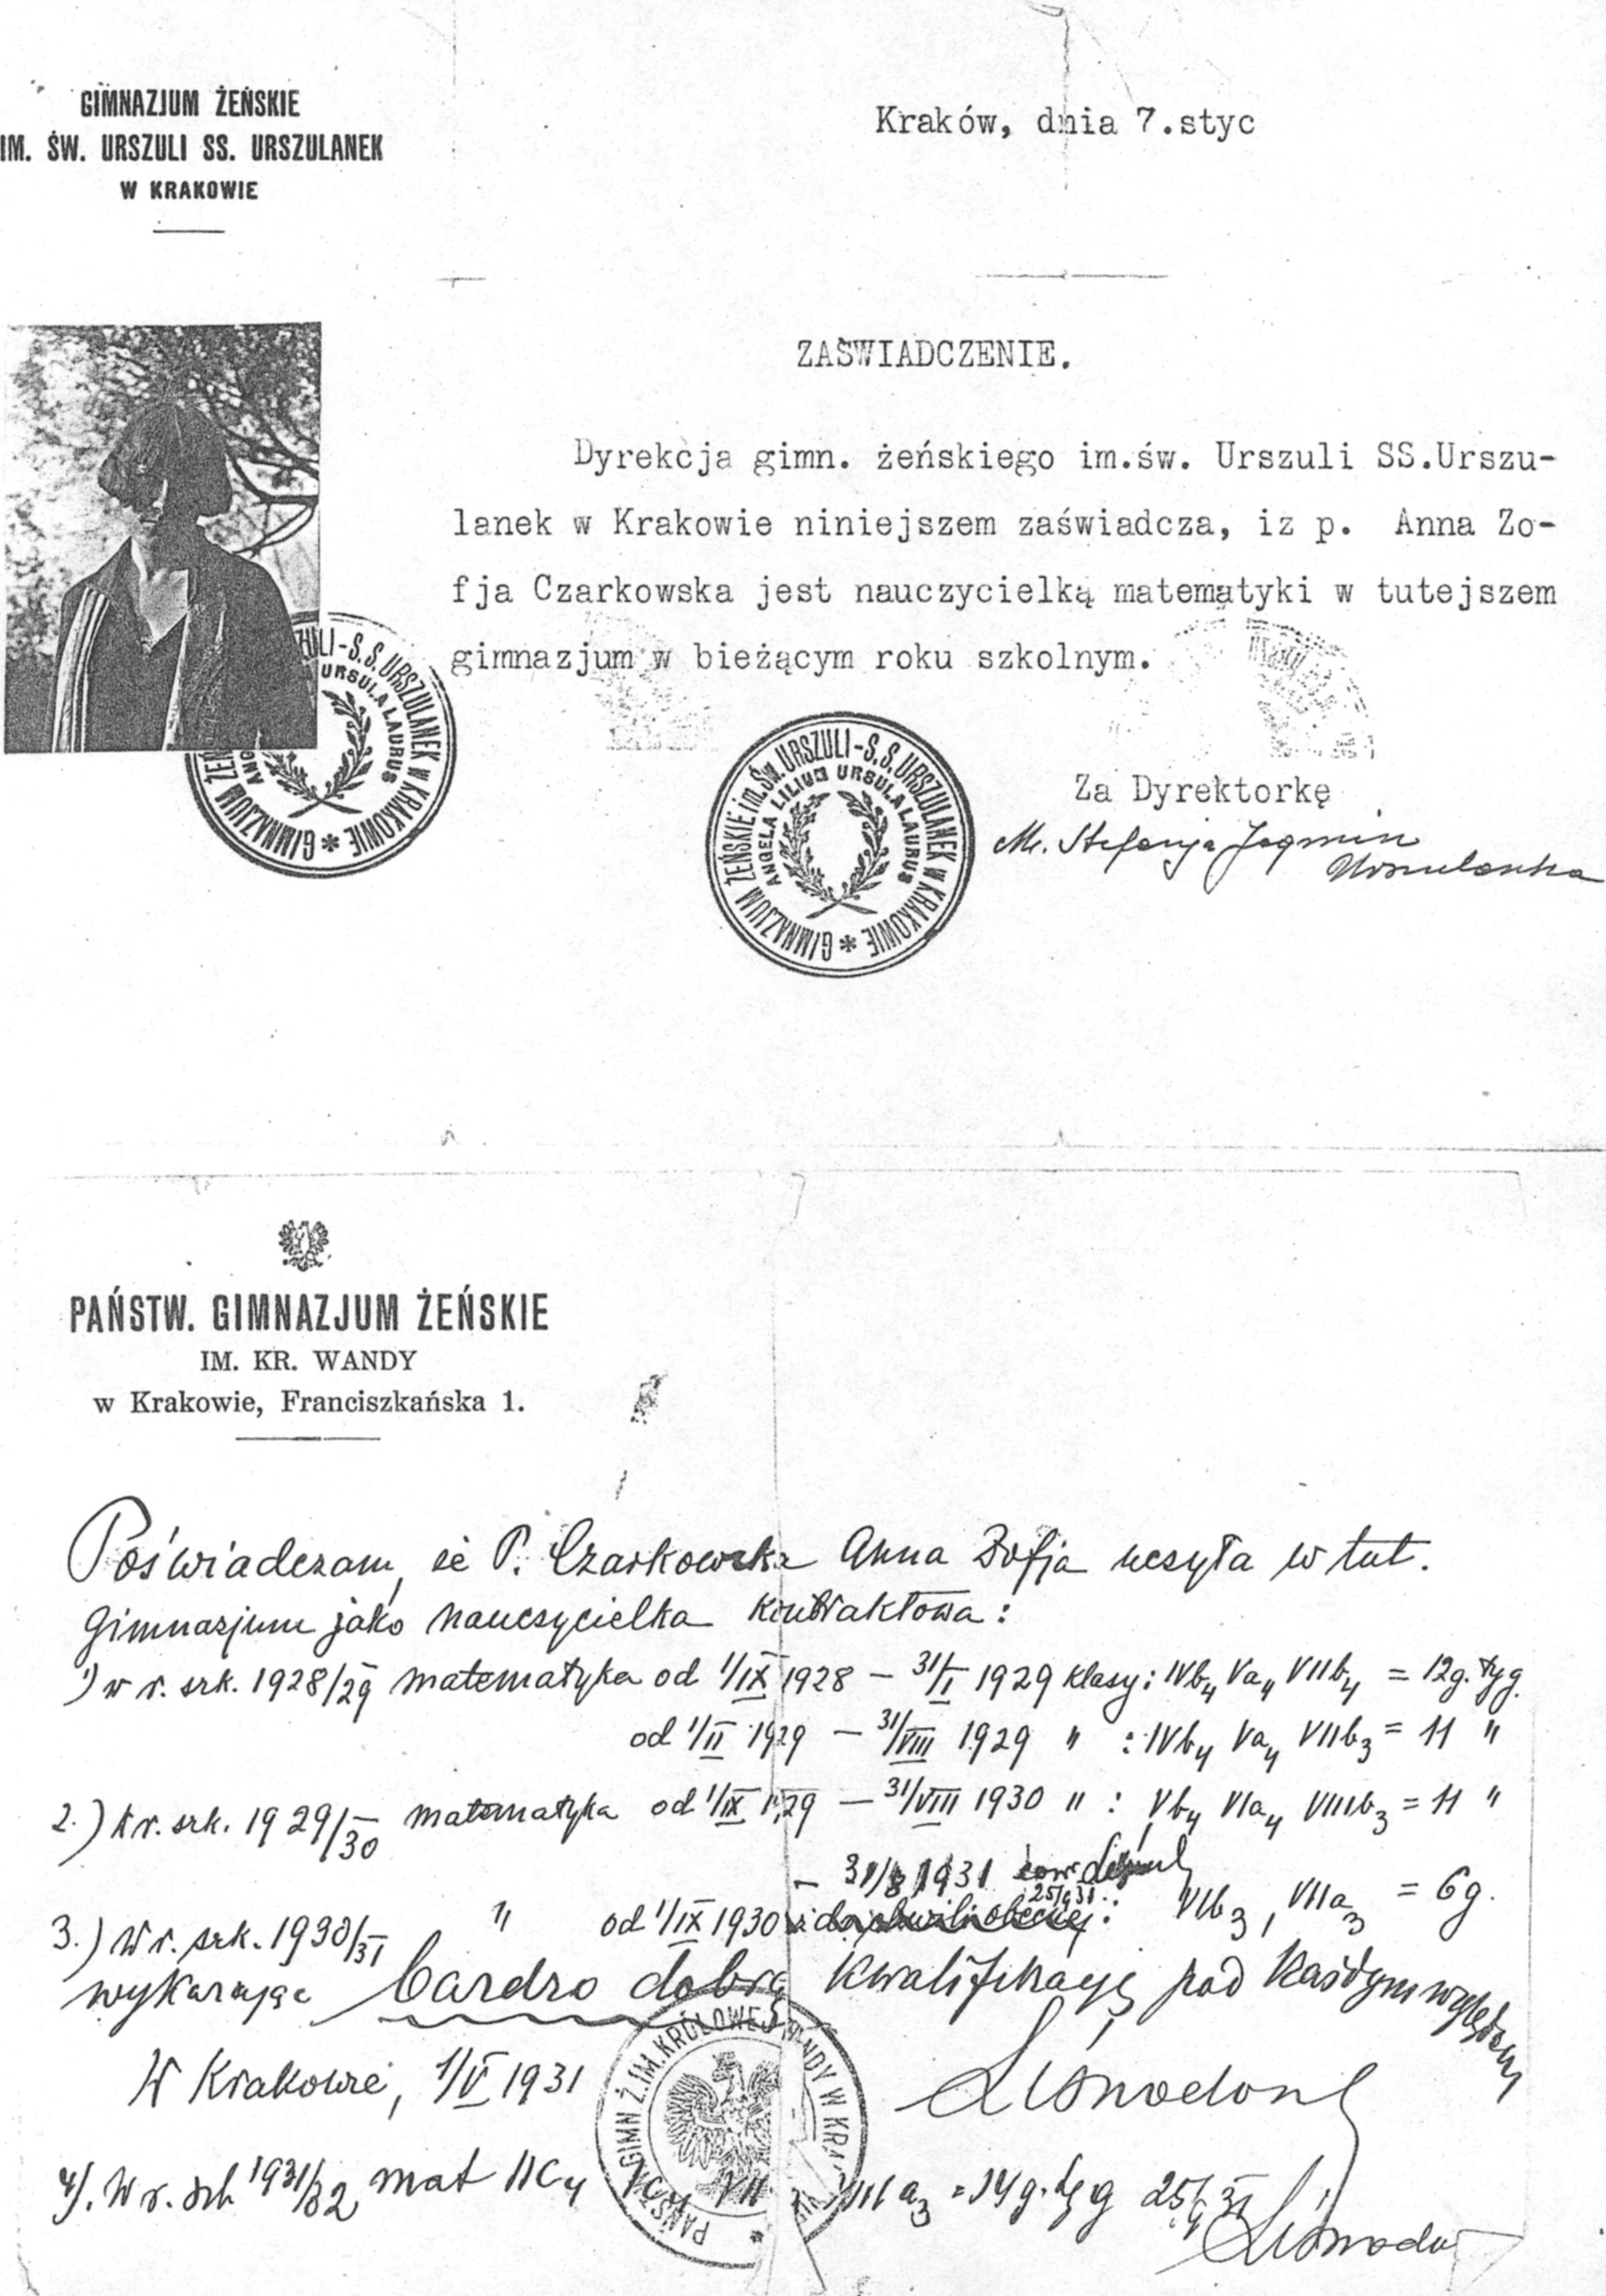 GIMNAZJUM ŻEŃSKIE
IM. ŚW. URSZULI SS. URSZULANEK
W KRAKOWIE
Kraków, dnia 7.styc
ZAŚWIADCZENIE.
Dyrekcja gimn. żeńskiego im.św. Urszuli SS.Urszu-
lanek w Krakowie niniejszem zaświadcza, iz p. Anna Zo-
fja Czarkowska jest nauczycielką matematyki w tutejszem
gimnazjum w bieżącym roku szkolnym.
ZULI-S.S.URSZULANEK W KRAKOWIE * GIMNAZJUM ŻEŃ
URSULA LAURUS ANG
GIMNAZJUM ŻEŃSKIE im. Św. URSZULI-S.S.URSZULANEK W KRAKOWIE *
ANGELA LILIUM URSULA LAURUS
Za Dyrektorkę
M. Stefanja Jagmin
Urszulanka
PAŃSTW. GIMNAZJUM ŻEŃSKIE
IM. KR. WANDY
w Krakowie, Franciszkańska 1.
Poświadczam, że P. Czarkowska Anna Zofja uczyła w tut.
gimnazjum jako nauczycielka kontraktowa:
1) w r. szk. 1928/29 matematyka od 1/IX 1928 – 31/I 1929 klasy: IVb4 Va4 VIIb4 = 12g. tyg.
od 1/II 1929 – 31/VIII 1929 " : IVb4 Va4 VIIb3 = 11 "
2.) w r. szk. 1929/30 matematyka od 1/IX 1929 – 31/VIII 1930 " : Vb4 VIa4 VIIIb3 = 11 "
– 31/8 1931
3.) w r. szk. 1930/31 " od 1/IX 1930 do chwili obecnej: VIb3, VIIa3 = 6g.
wykazując bardzo dobrą kwalifikację pod każdym względem
W Krakowie, 1/V 1931
PAŃSTW. GIMN Ż. IM. KRÓLOWEJ WANDY W KRA
4). W r. szk 1931/32 mat IIc4 VIII a3 = 14g. tyg